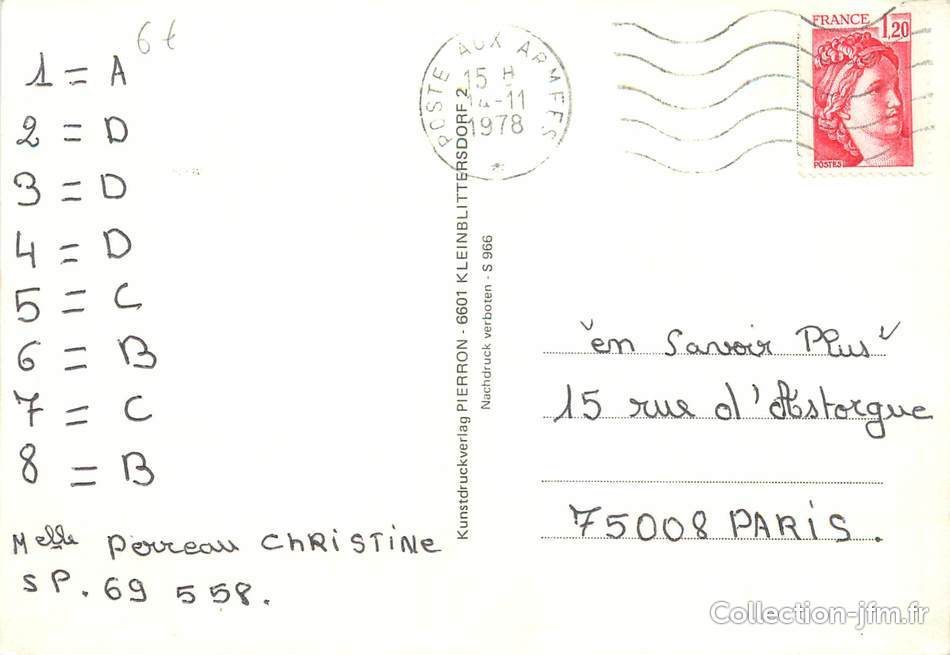 6€
1 = A
2 = D
3 = D
4 = D
5 = C
6 = B
7 = C
8 = B
Melle Perreau CHRISTINE
SP. 69 558.
Kunstdruckverlag PIERRON - 6601 KLEINBLITTERSDORF 2
Nachdruck verboten - S 966
POSTE AUX ARMEES
15 H
14-11
1978
*
FRANCE 1,20
POSTES
"en Savoir Plus"
15 rue d'Astorgue
75008 PARIS.
Collection-jfm.fr